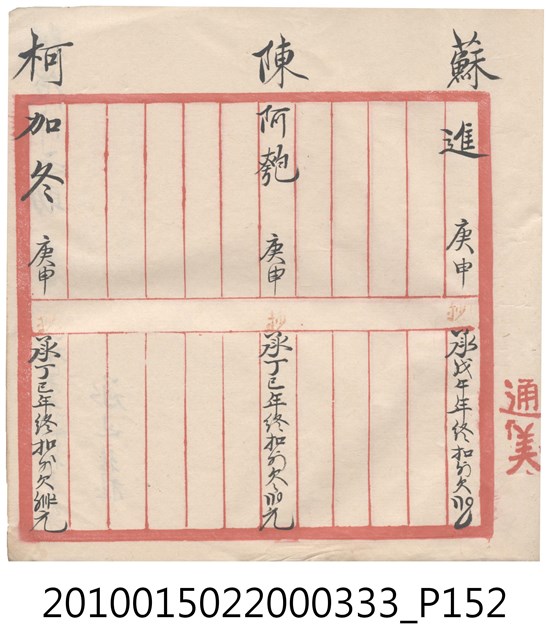 蘇進 庚申
抄
承戊午年終扣分欠
陳阿匏 庚申
抄
承丁巳年終扣分欠 元
柯加冬 庚申
抄
承丁巳年終扣分欠 元
通美
2010015022000333_P152